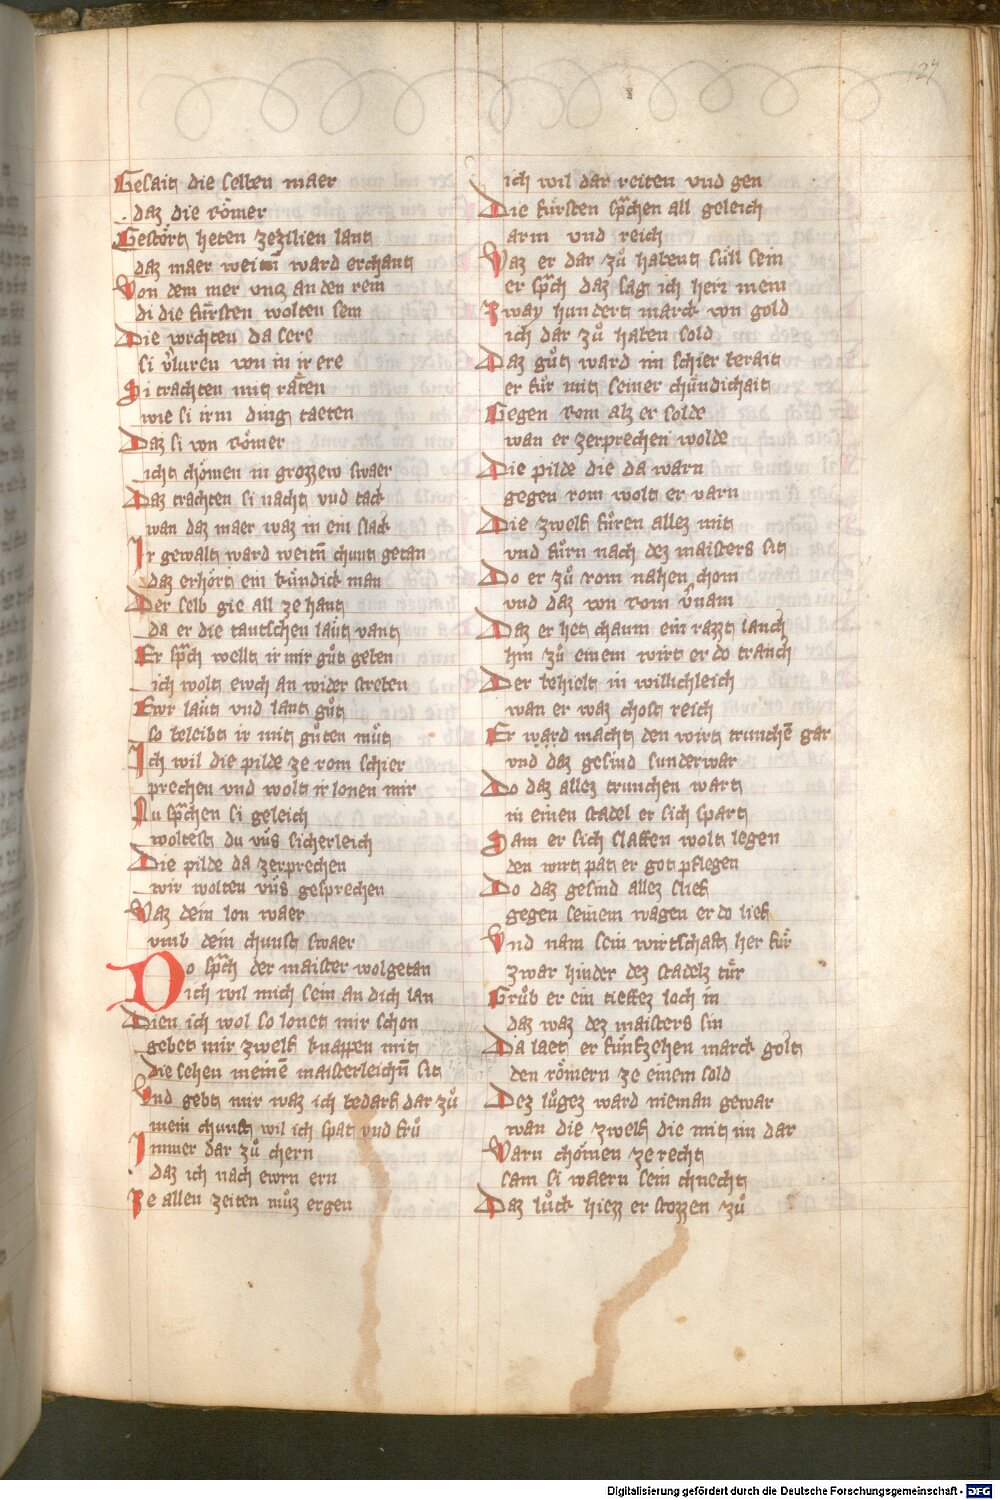 127
Gesait die selben maer
daz die Römer
Gestört heten zezilien lant
daz maer weitn̄ ward erchant
Von dem mer vntz an den rein
di die fürsten wolten sein
Die vorchten da sere
si v͛luren von in ir ere
Si trachten mit räten
wie si irm ding taeten
Daz si von Römer
icht chömen in grozzew swaer
Daz trachten si nacht vnd tack
wan daz maer waz in ein slack
Ir gewalt ward weitn̄ chunt getan
daz erhört ein kündick man
Der selb gie all ze hant
da er die tautschen läut vant
Er sp͛ch wellt ir mir gůt geben
ich wolt ewch an wider streben
Ewr läut vnd lant gůt
so beleibt ir mit gůten můt
Ich wil die pilde ze rom schier
prechen vnd wolt ir lonen mir
Nu sp͛chen si geleich
woltest du vns sicherleich
Die pilde da zerprechen
wir wolten vns gesprechen
Waz dein lon waer
vmb dein chunst swaer
Do sp͛ch der maister wolgetan
ich wil mich sein an dich lan
Dien ich wol so lonet mir schon
gebet mir zwelf knappen mit
die sehen meinē maisterleichn̄ sit
Vnd gebt mir waz ich bedarf dar zů
mein chunst wil ich spat vnd frů
Immer dar zů chern
daz ich nach ewrn ern
Ze allen zeiten můz ergen
ich wil dar reiten vnd gen
Die fürsten sp͛chen all geleich
arm vnd reich
Waz er dar zů habent süll sein
er sp͛ch daz sag ich heri mein
Zway hundert marck von gold
ich dar zů haben sold
Daz gůt ward im schier berait
er für mit seiner chündichait
Gegen rom alz er solde
wan er zerprechen wolde
Die pilde die da warn
gegen rom wolt er varn
Die zwelf füren allez mit
vnd fürn nach dez maisters sit
Do er zů rom nahen chom
vnd daz von rom v͛nam
Daz er het chaum ein razzt lanch
hin zů einem wirt er do tranch
Der behielt in willichleich
wan er waz chost reich
Er ward macht den wirt trunchē gar
vnd daz gesind sunderwar
Do daz allez trunchen wart
in einen stadel er sich spart
Sam er sich slaffen wolt legen
den wirt pat er got pflegen
Do daz gesind allez slief
gegen seinem wagen er do lief
Vnd nam sein wirtschaft her für
zwar hinder dez stadelz tür
Grůb er ein tieffez loch in
daz waz dez maisters sin
Da laet er fünfzehen marck golt
den römern ze einem sold
Dez lůgez ward nieman gewar
wan die zwelf die mit im dar
Warn chömen ze recht
sam si waern sein chnecht
Daz lůck hiezz er stozzen zů
Digitalisierung gefördert durch die Deutsche Forschungsgemeinschaft - DFG